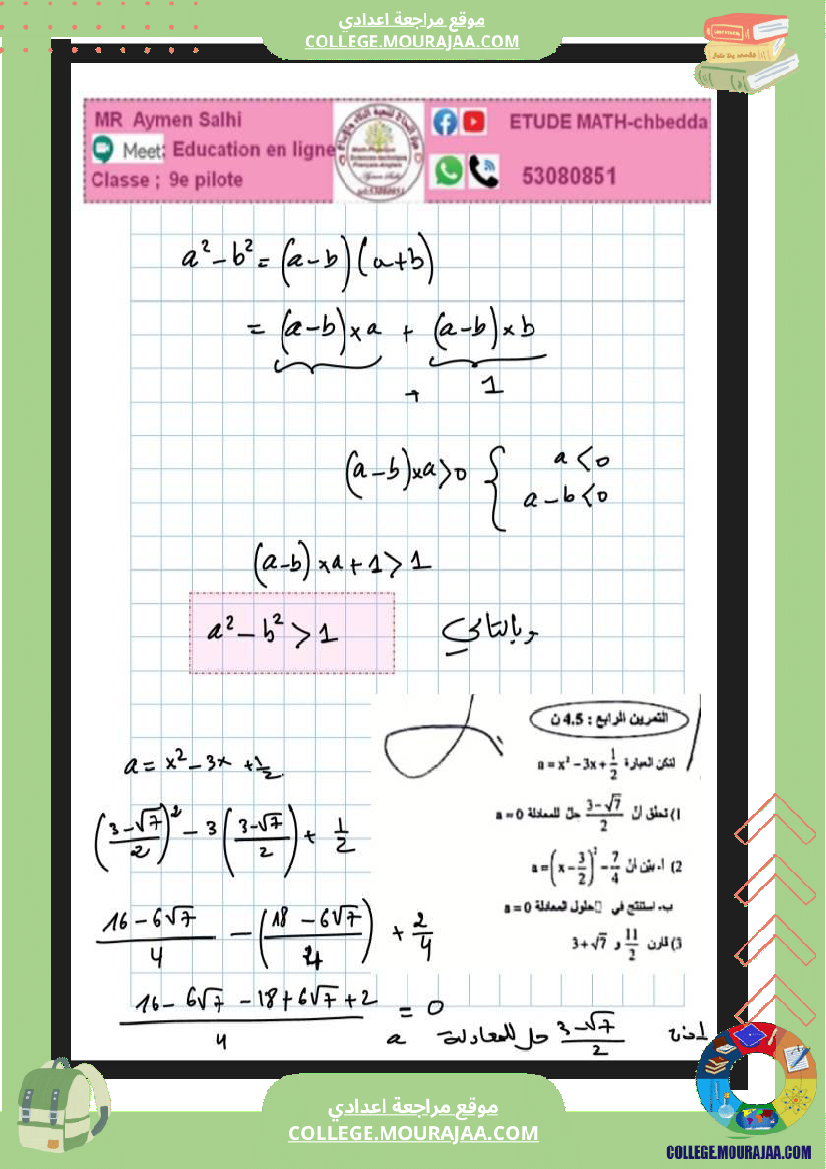 موقع مراجعة اعدادي
COLLEGE.MOURAJAA.COM
MR Aymen Salhi
Meet: Education en ligne
Classe ; 9e pilote
ETUDE MATH-chbedda
53080851
a² - b² = (a-b)(a+b)
= (a-b)×a + (a-b)×b
+ 1
(a-b)×a>0 { a<0
a-b<0
(a-b)×a+1>1
وبالتالي a² - b² > 1
التمرين الرابع : 4.5 ن
لتكن العبارة a = x² - 3x + 1/2
1) تحقق أنّ (3-√7)/2 حلّ للمعادلة a = 0
2) أ- بيّن أنّ a = (x - 3/2)² - 7/4
ب- استنتج في حلول المعادلة a = 0
3) قارن 11/2 و 3+√7
a = x² - 3x + 1/2
((3-√7)/2)² - 3((3-√7)/2) + 1/2
(16-6√7)/4 - ((18-6√7)/4) + 2/4
(16-6√7-18+6√7+2)/4 = 0
إذن (3-√7)/2 حل للمعادلة a
موقع مراجعة اعدادي
COLLEGE.MOURAJAA.COM
COLLEGE.MOURAJAA.COM